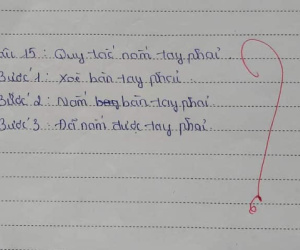 Câu 15: Quy tắc nắm tay phải.
Bước 1: Xoè bàn tay phải.
Bước 2: Nắm bàn tay phải
Bước 3: Đã nắm được tay phải.